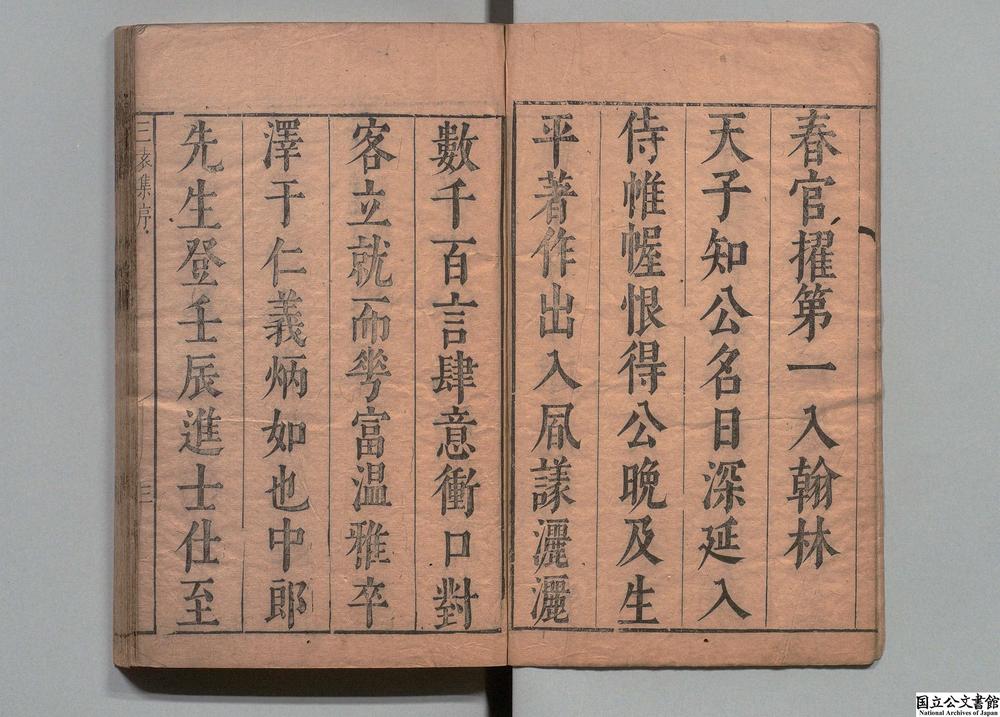 春官擢第一入翰林
天子知公名日深延入
侍帷幄恨得公晩及生
平著作出入風謠灑灑
數千百言肆意衝口對
客立就而雋富溫雅卒
澤于仁義炳如也中郎
先生登壬辰進士仕至
三袁集序
三
国立公文書館
National Archives of Japan